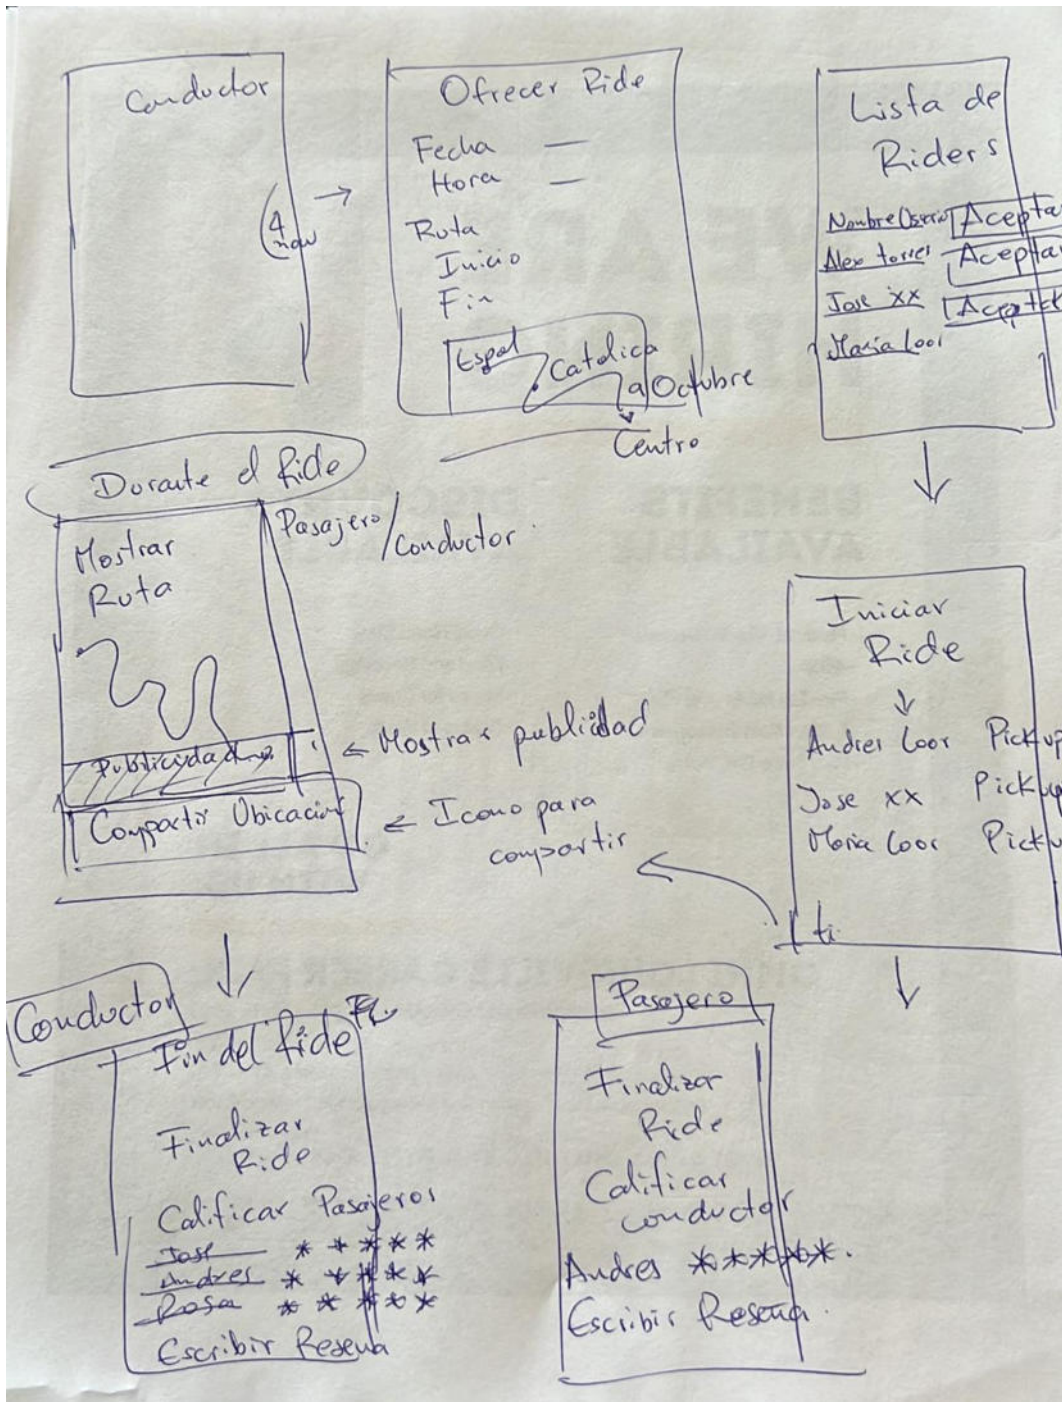 Conductor
Ofrecer Ride
Fecha
Hora
Ruta
Inicio
Fin
Espol
Catolica
a Octubre
Centro
Lista de
Riders
Aceptar
Alex torres Aceptar
Jose xx
Maria Loor
Durante el Ride
Pasajero/
conductor
Mostrar
Ruta
Publicidad
Mostrar publicidad
Compartir Ubicación
Icono para
compartir
Iniciar
Ride
Andres Loor Pickup
Jose xx Pickup
Maria Loor Pickup
Conductor
Fin del Ride
Finalizar
Ride
Calificar Pasajeros
Jose *****
Andres *****
Rosa *****
Escribir Reseña
Pasajero
Finalizar
Ride
Calificar
conductor
Andres *****.
Escribir Reseña.